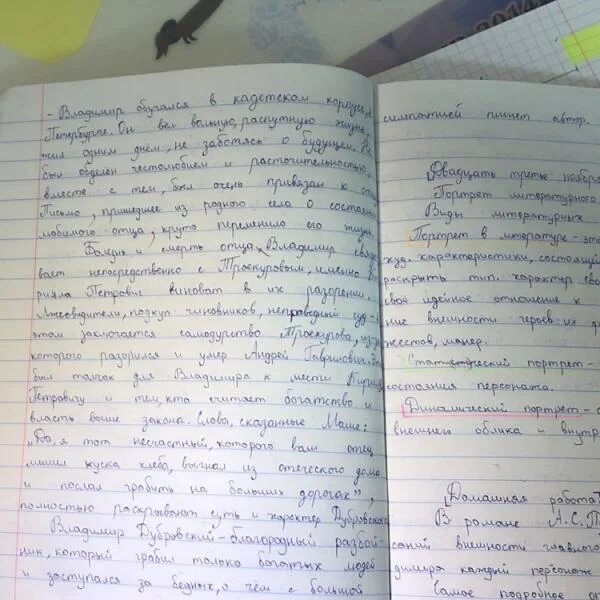 - Владимир обучался в кадетском корпусе в
Петербурге. Он вёл вольную, распутную жизнь,
жил одним днём, не заботясь о будущем. Не
был обделён честолюбием и расточительностью,
вместе с тем, был очень привязан к
Письмо, пришедшее из родного села о состоянии
любимого отца, круто переменило его жизнь.
Болезнь и смерть отца Владимир связы-
вает непосредственно с Троекуровым, именно
Петрович виноват в их разорении.
Лжесвидетели, подкуп чиновников, неправедный суд - в
этом заключается самодурство Троекурова, из-за
которого разорился и умер Андрей Гаврилович. Это
был толчок для Владимира к мести Кириле
Петровичу и тем, кто считает богатство и
власть выше закона. Слова, сказанные Маше:
"Да, я тот несчастный, которого ваш отец
лишил куска хлеба, выгнал из отеческого дома
и послал грабить на больших дорогах",
полностью раскрывают суть и характер Дубровского.
Владимир Дубровский - благородный разбой-
ник, который грабил только богатых людей
и заступался за бедных, о чём с большой
симпатией пишет автор.
Двадцать третье ноября
Портрет литературного
Виды литературных
Портрет в литературе - это
худ. характеристики, состоящий
раскрыть тип. характер сво
своё идейное отношения к
ние внешности героев: их
жестов, манер.
портрет -
состояния персонажа.
Динамический портрет - с
внешнего облика и внутр
Домашняя работа
В романе А.С.П
саний внешности главного
димира каждый персонаж
Самое подробное оп